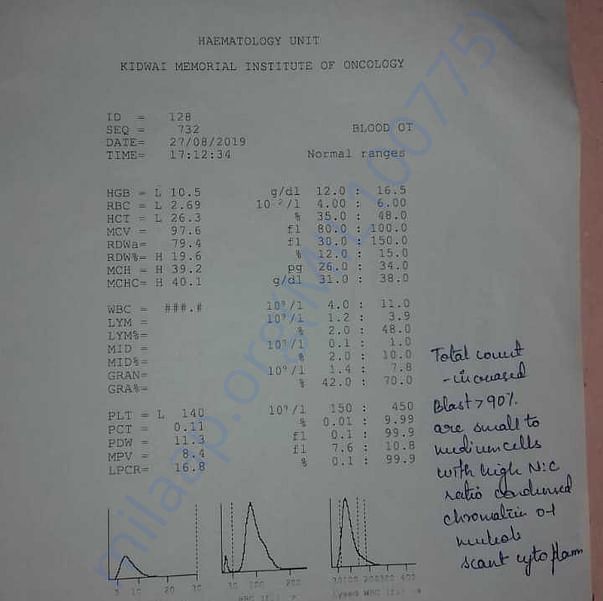 HAEMATOLOGY UNIT
KIDWAI MEMORIAL INSTITUTE OF ONCOLOGY
ID = 128
SEQ = 732 BLOOD OT
DATE= 27/08/2019
TIME= 17:12:34 Normal ranges
HGB = L 10.5 g/dl 12.0 : 16.5
RBC = L 2.69 /l 4.00 : 6.00
HCT = L 26.3 % 35.0 : 48.0
MCV = 97.6 fl 80.0 : 100.0
RDWa= 79.4 fl 30.0 : 150.0
RDW%= H 19.6 % 12.0 : 15.0
MCH = H 39.2 pg 26.0 : 34.0
MCHC= H 40.1 g/dl 31.0 : 38.0
WBC = ###.# 10⁹/l 4.0 : 11.0
LYM = 10⁹/l 1.2 : 3.9
LYM%= % 2.0 : 48.0
MID = 10⁹/l 0.1 : 1.0
MID%= % 2.0 : 10.0
GRAN= 10⁹/l 1.4 : 7.8
GRA%= % 42.0 : 70.0
PLT = L 140 10⁹/l 150 : 450
PCT = 0.11 % 0.01 : 9.99
PDW = 11.3 fl 0.1 : 99.9
MPV = 8.4 fl 7.6 : 10.8
LPCR= 16.8 % 0.1 : 99.9
Total count
- increased
Blast >90%
are small to
medium cells
with high N:C
ratio condensed
chromatin
scant cytoplasm
5 10 30
50 100 200
100 200 300 400
milaap.org